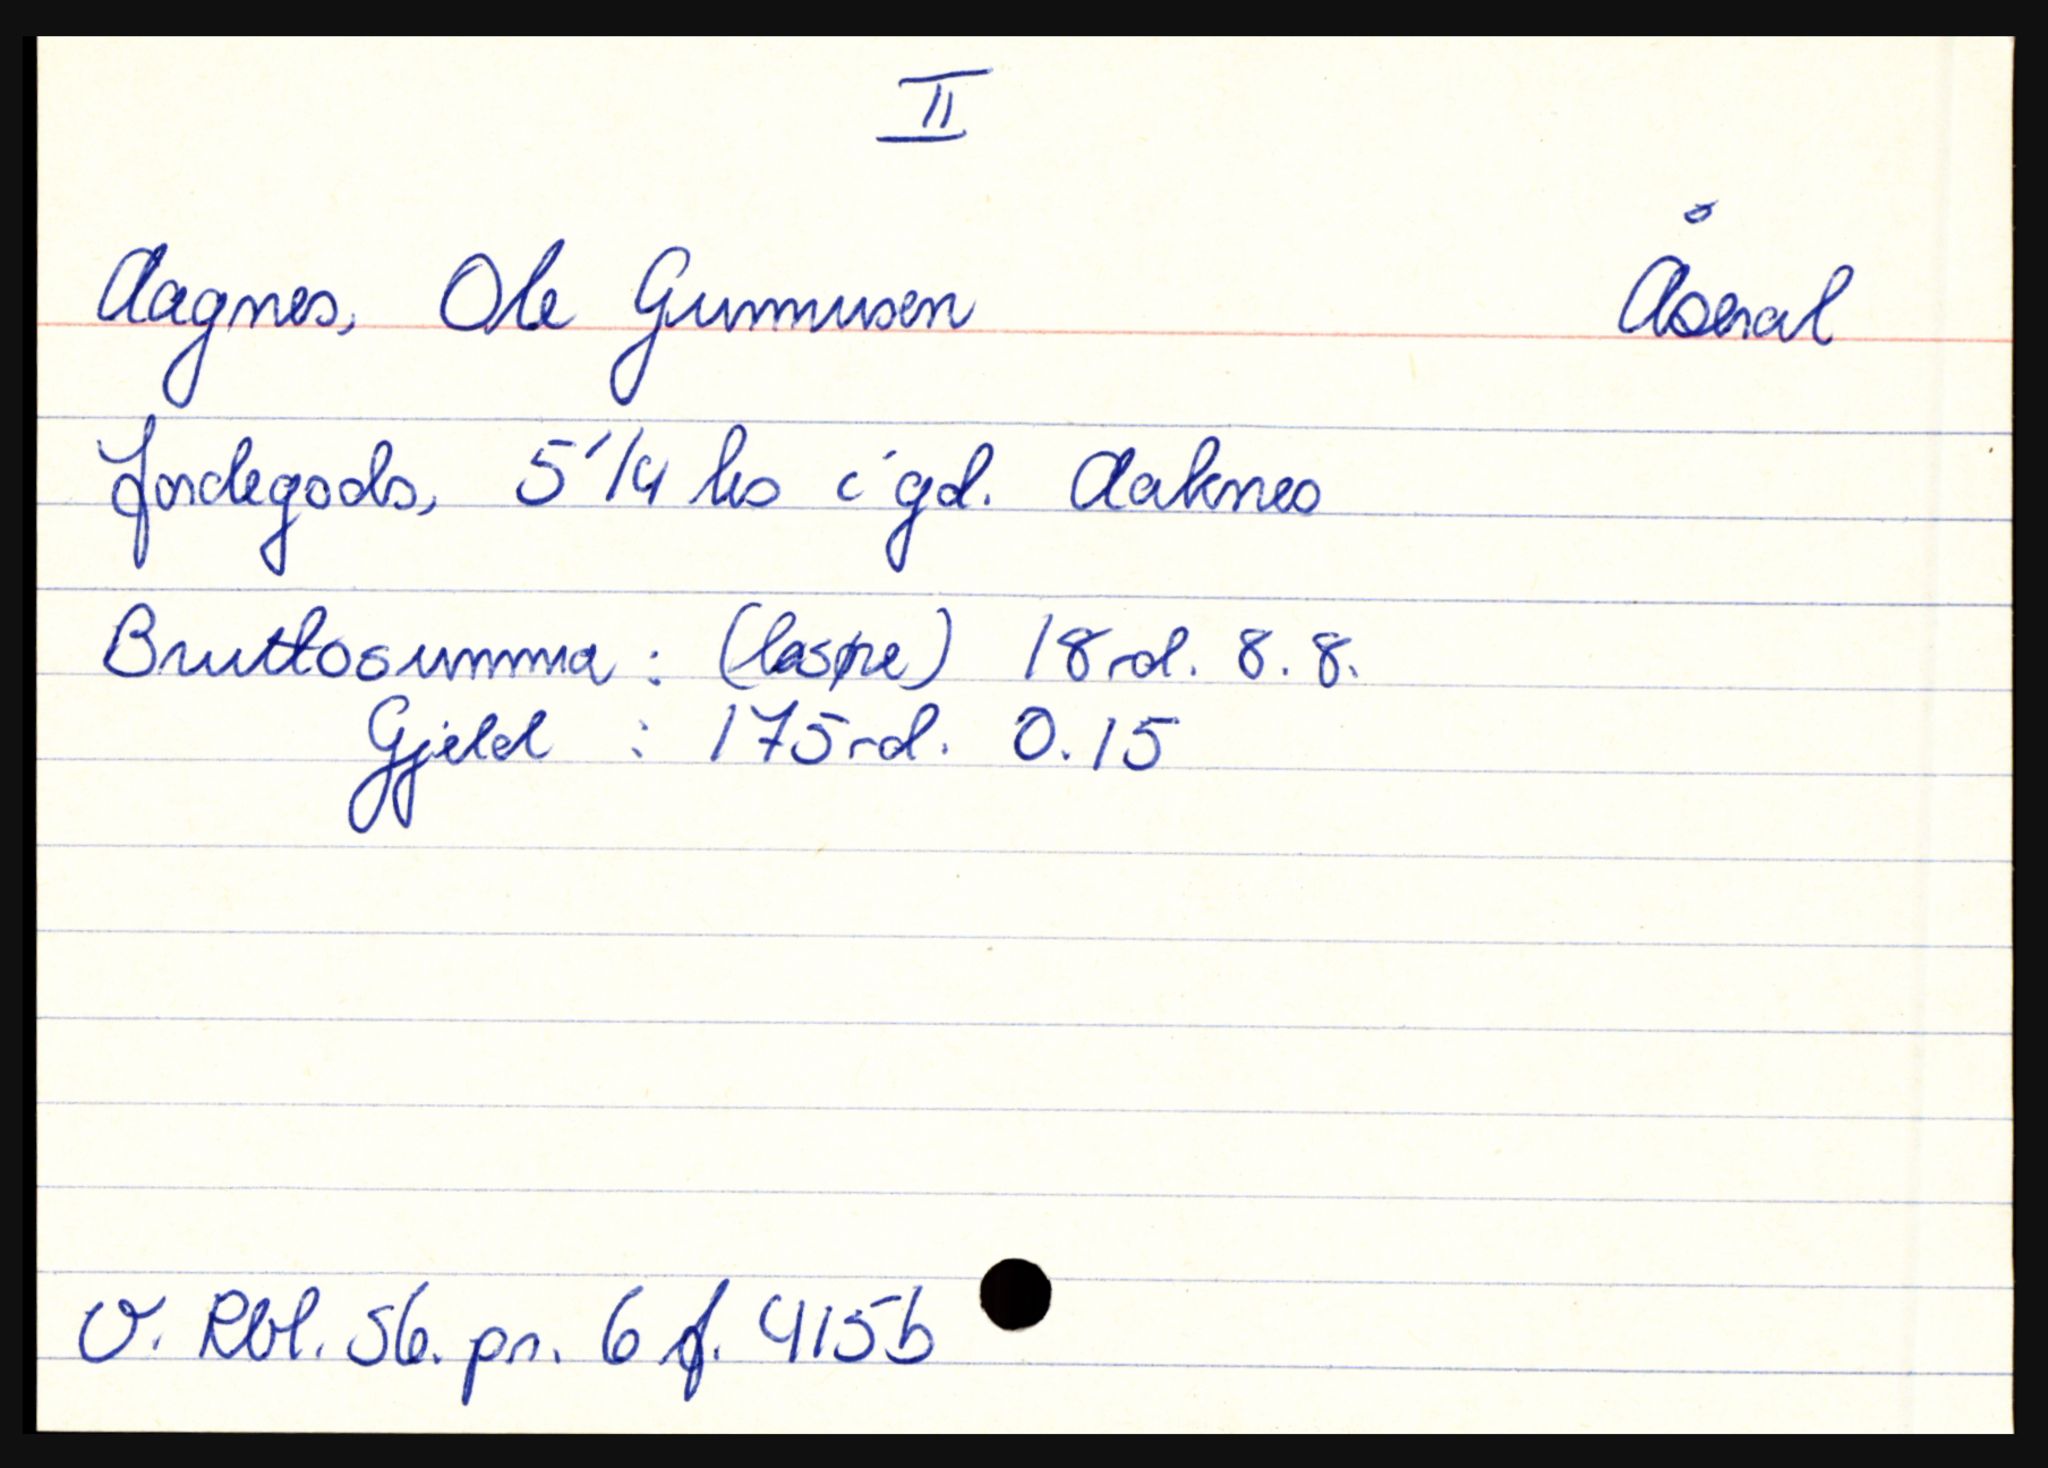 II
Aagnes, Ole Gunnusen Åseral
Jordegods, 5 1/4 hs i gd. Aaknes
Bruttosumma : (laspe) 18 rd. 8. 8.
Gjeld : 175 rd. 0. 15
V. Rbl. Sb. pr. 6 f. 415b